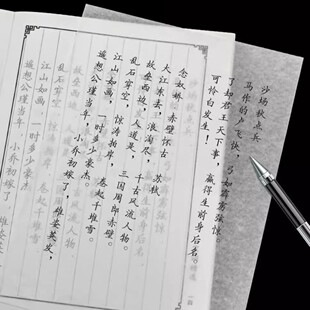 沙场秋点兵。
马作的卢飞快，弓如霹雳弦惊。
了却君王天下事，赢得生前身后名。
可怜白发生！
念奴娇 赤壁怀古 苏轼
大江东去，浪淘尽，千古风流人物。
故垒西边，人道是，三国周郎赤壁。
乱石穿空，惊涛拍岸，卷起千堆雪。
江山如画，一时多少豪杰。
遥想公瑾当年，小乔初嫁了，雄姿英发，